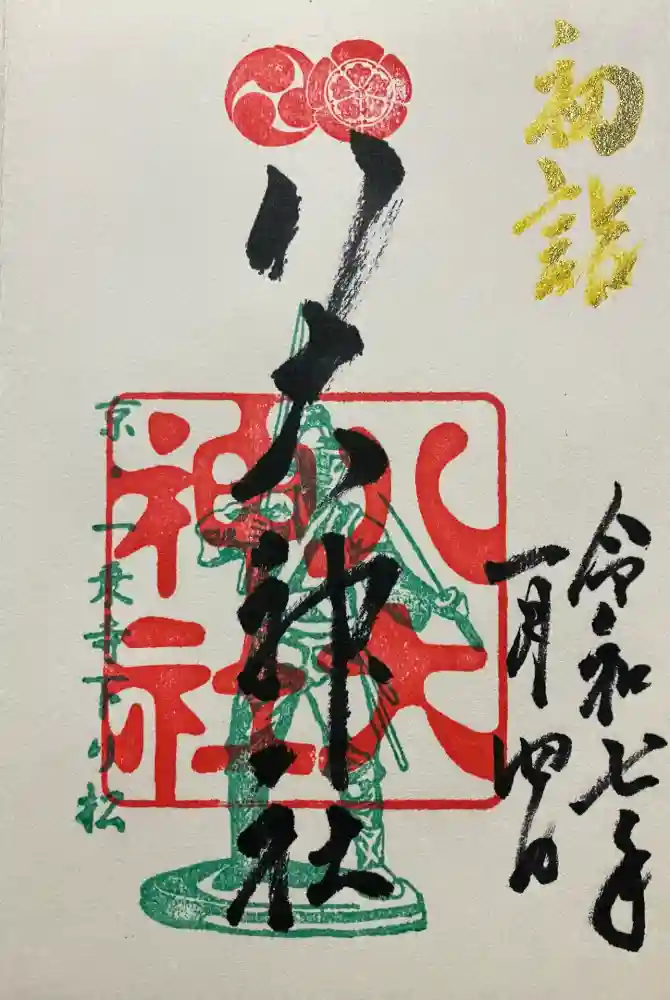 初詣
令和七年
一月四日
八大神社
八大神社
京・一乗寺下り松